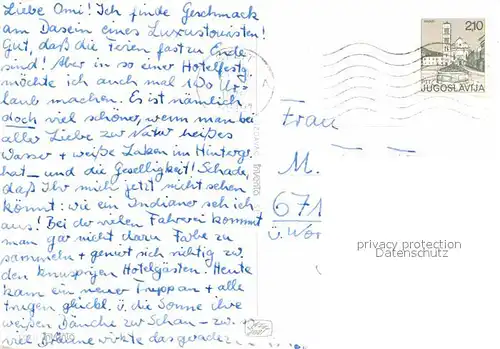 Liebe Omi! Ich finde Geschmack
am Dasein eines Luxustouristen!
Gut, daß die Ferien fast zu Ende
sind! Aber in so einer Hotelfestg.
möchte ich auch mal 100 Ur-
laub machen. Es ist nämlich
doch viel schöner, wenn man bei
aller Liebe zur Natur heißes
Wasser + weiße Laken im Hintergr.
hat – und die Geselligkeit! Schade,
daß Ihr mich jetzt nicht sehen
könnt: wie ein Indianer seh ich
aus! Bei der vielen Fahrerei kommt
man gar nicht dazu Farbe zu
sammeln + geniert sich richtig zw.
den knusprigen Hotelgästen. Heute
kam ein neuer Trupp an + alle
trugen glückl. ü. die Sonne ihre
weißen Bäuche zur Schau – zw.
viel Bräune wirkte das gerade
2,10
JUGOSLAVIJA
Frau
M.
671
ü. Wor
privacy protection
Datenschutz